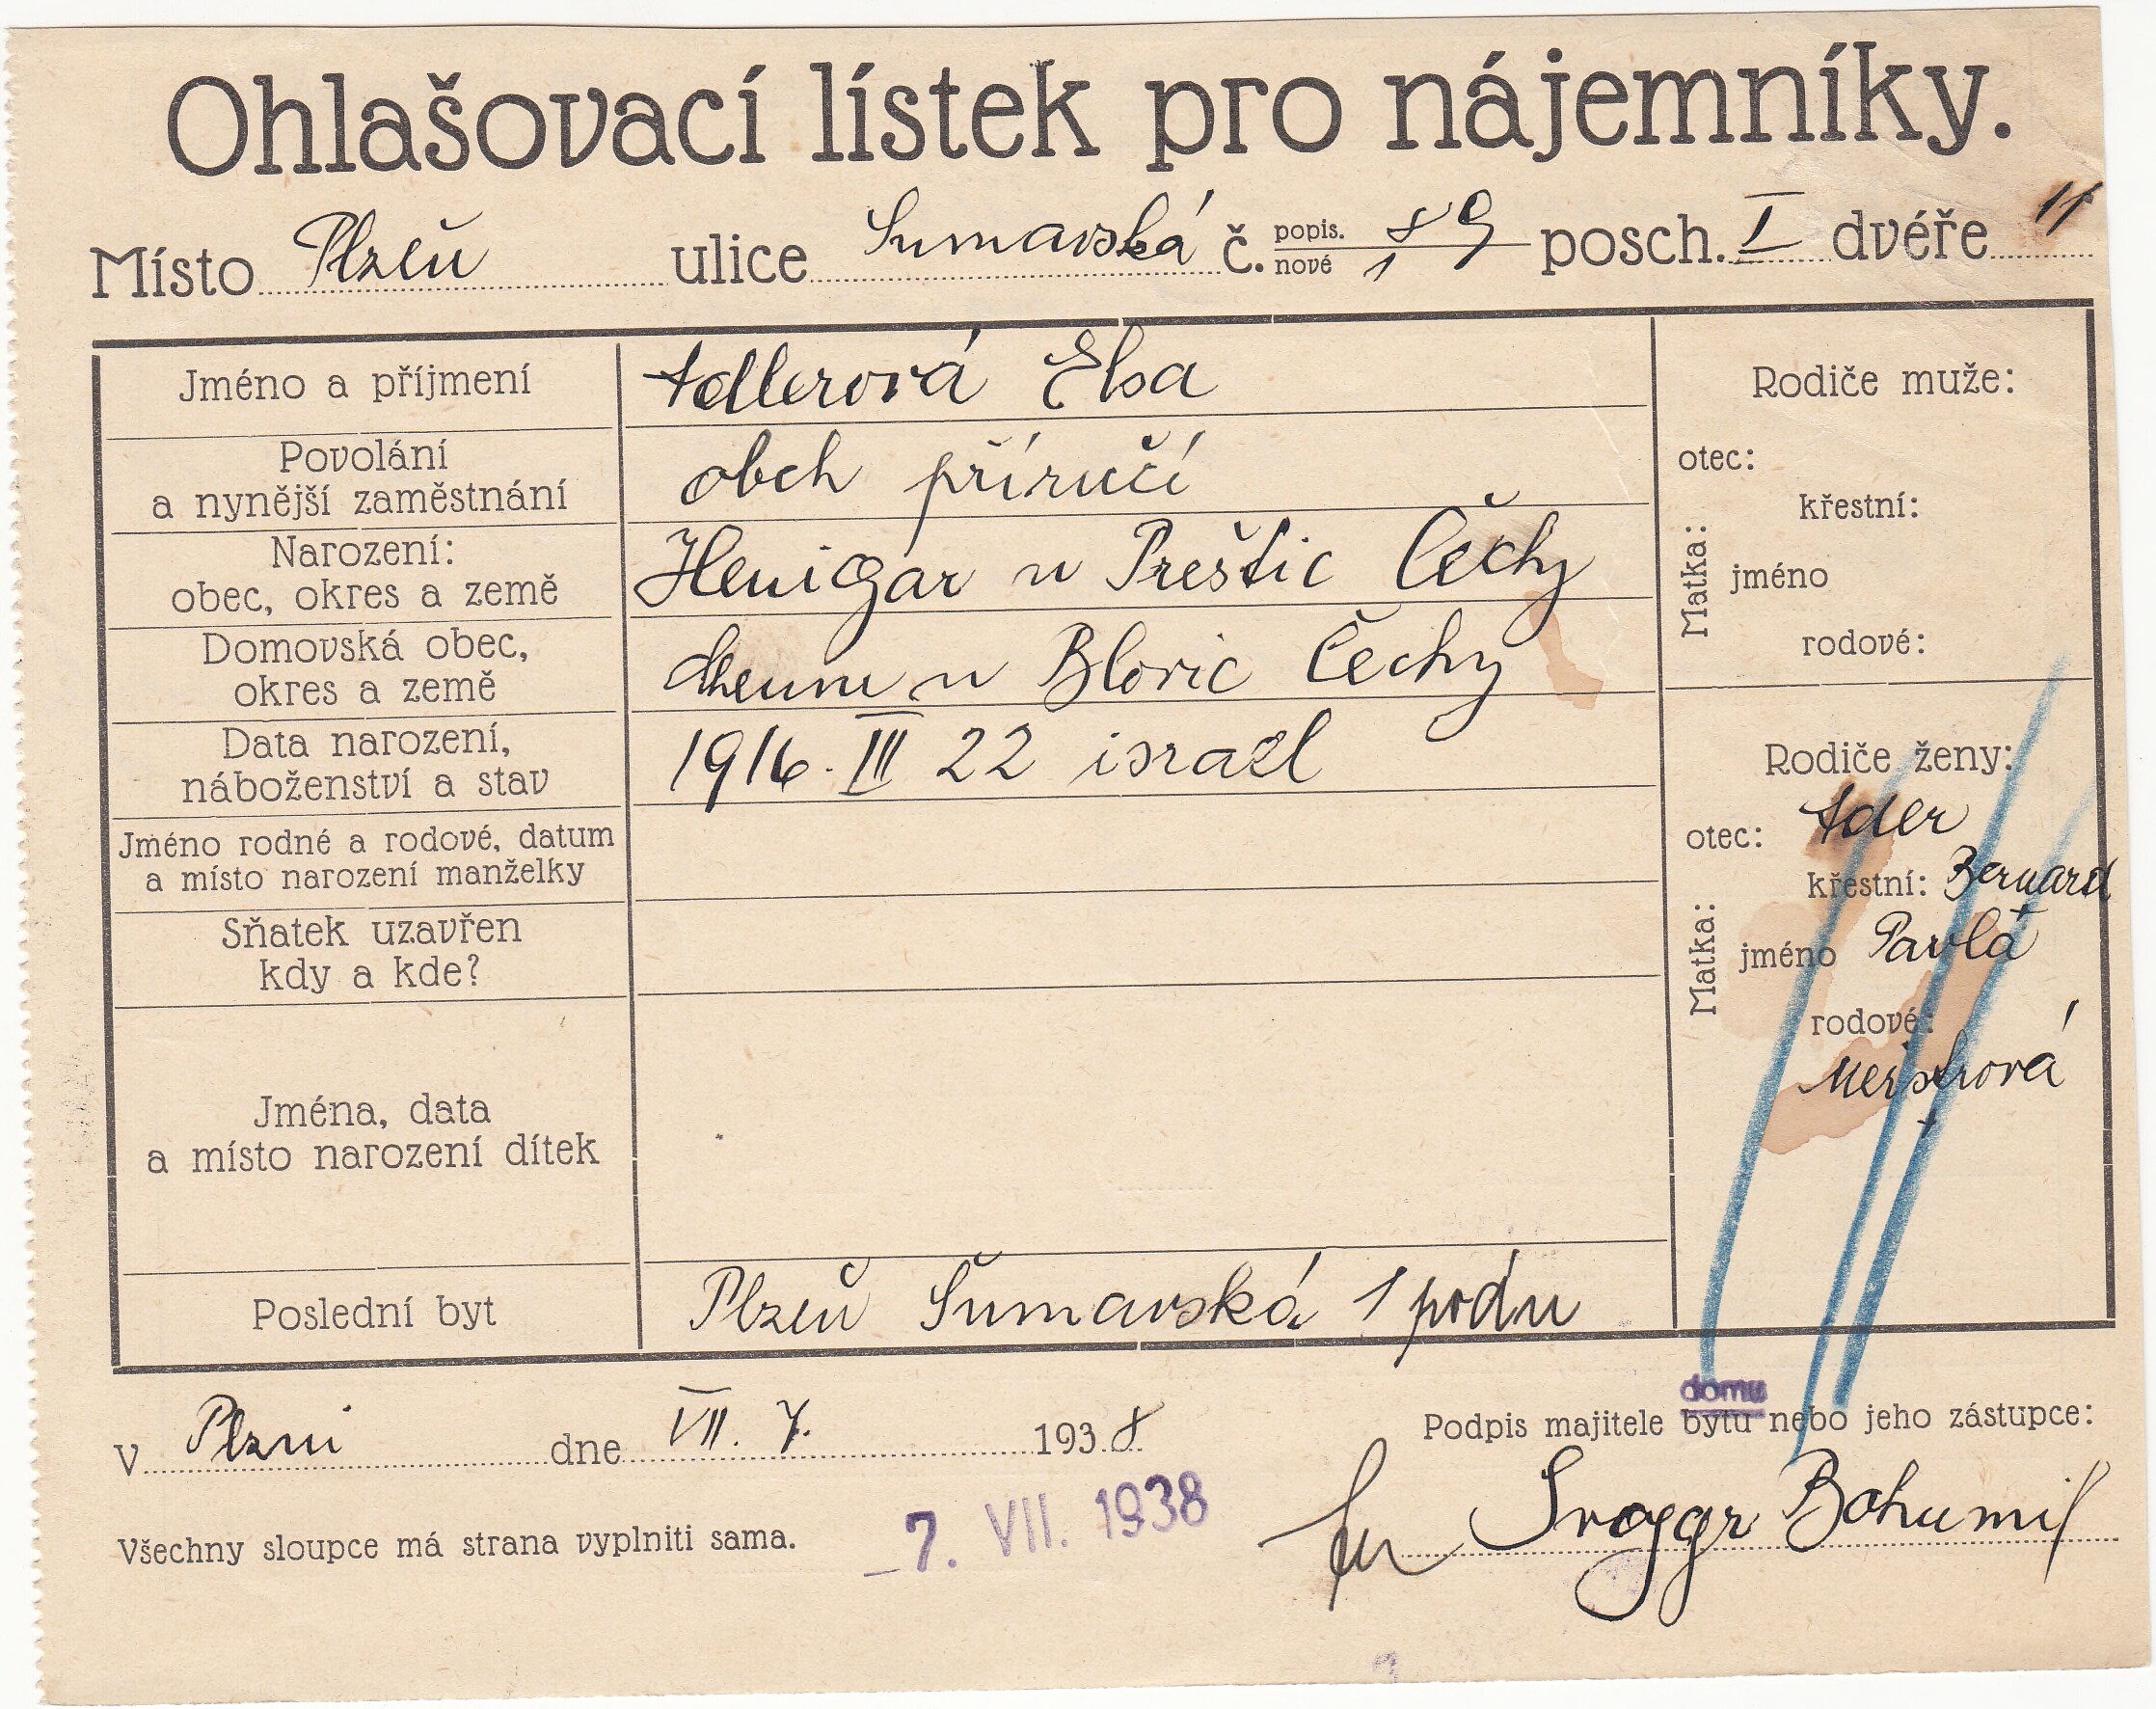 Ohlašovací lístek pro nájemníky.
Místo Plzeň ulice Šumavská č. popis. 89 posch. I dvéře 11
nové 1
Jméno a příjmení Adlerová Elsa
Povolání
a nynější zaměstnání obch příručí
Narození:
obec, okres a země Henigar u Přeštic Čechy
Domovská obec,
okres a země u Blovic Čechy
Data narození,
náboženství a stav 1916. III 22 israel
Jméno rodné a rodové, datum
a místo narození manželky
Sňatek uzavřen
kdy a kde?
Jména, data
a místo narození dítek
Poslední byt Plzeň Šumavská 1 podn
Rodiče muže:
otec:
Matka:
křestní:
jméno
rodové:
Rodiče ženy:
otec: Adler
Matka:
křestní: Bernard
jméno Pavla
rodové:
v Plzni dne VII. 7. 1938
domu
Podpis majitele bytu nebo jeho zástupce:
Bohumil
Všechny sloupce má strana vyplniti sama.
7. VII. 1938